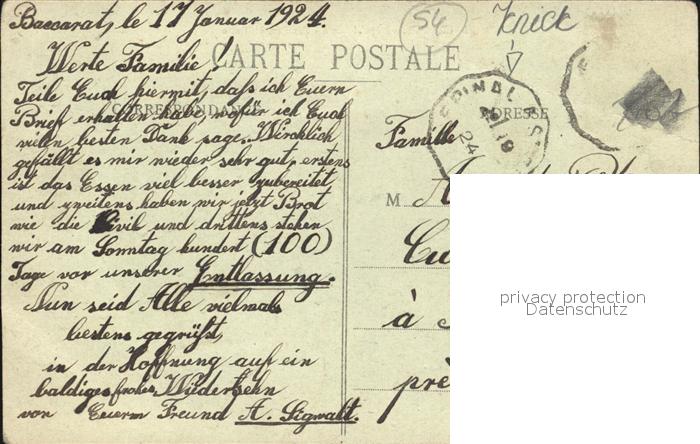 Baccarat, le 17 Januar 1924.
54
Knick
Werte Familie!
CARTE POSTALE
Teile Euch hiermit, dass ich Euern
CORRESPONDANCE
ADRESSE
Brief erhalten habe, wofür ich Euch
vielen besten Dank sage. Wircklich
gefällt es mir wieder sehr gut, erstens
ist das Essen viel besser zubereitet
und zweitens haben wir jetzt Brot
wie die Civil und drittens stehen
wir am Sonntag hundert (100)
Tage vor unserer Entlassung.
Nun seid Alle vielmals
bestens gegrüßt,
in der Hoffnung auf ein
baldiges frohes Wiedersehn
von Euerm Freund A. Sigwalt.
EPINAL
19
24
Famille
M
à
près
privacy protection
Datenschutz